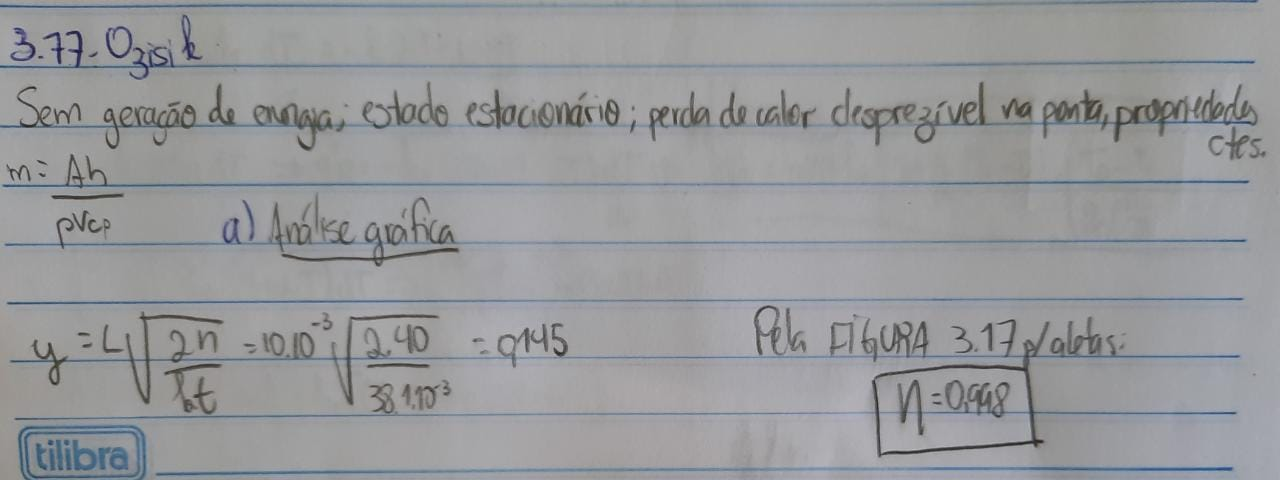 3.77- Ozisik
Sem geração de energia; estado estacionário; perda de calor desprezível na ponta, propriedades ctes.
m = Ah / ρVcp
a) Análise gráfica
y = L √(2h / kt) = 10.10⁻³ √(2.40 / 38.1.10⁻³) = 0,145
Pela FIGURA 3.17 p/ aletas:
η = 0,998
tilibra